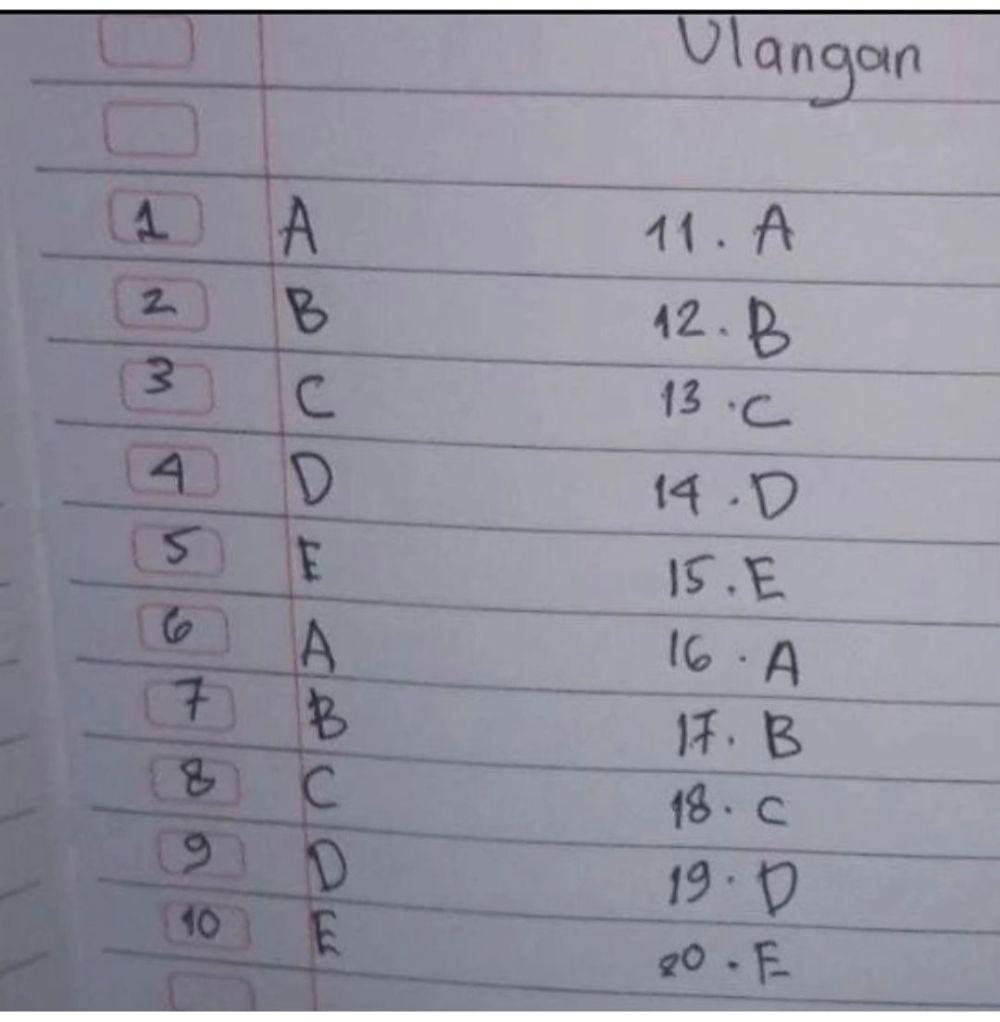 Ulangan
1 A 11. A
2 B 12. B
3 C 13. C
4 D 14. D
5 E 15. E
6 A 16. A
7 B 17. B
8 C 18. C
9 D 19. D
10 E 20. E